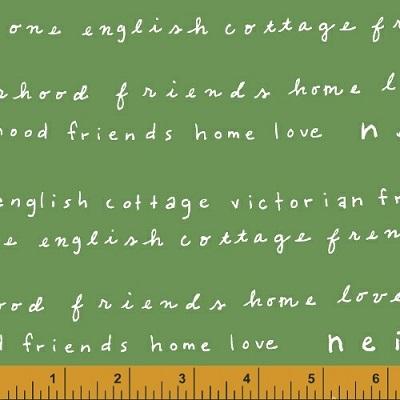 one english cottage
friends home
friends home love
english cottage victorian
english cottage
friends home love
friends home love
1 2 3 4 5 6